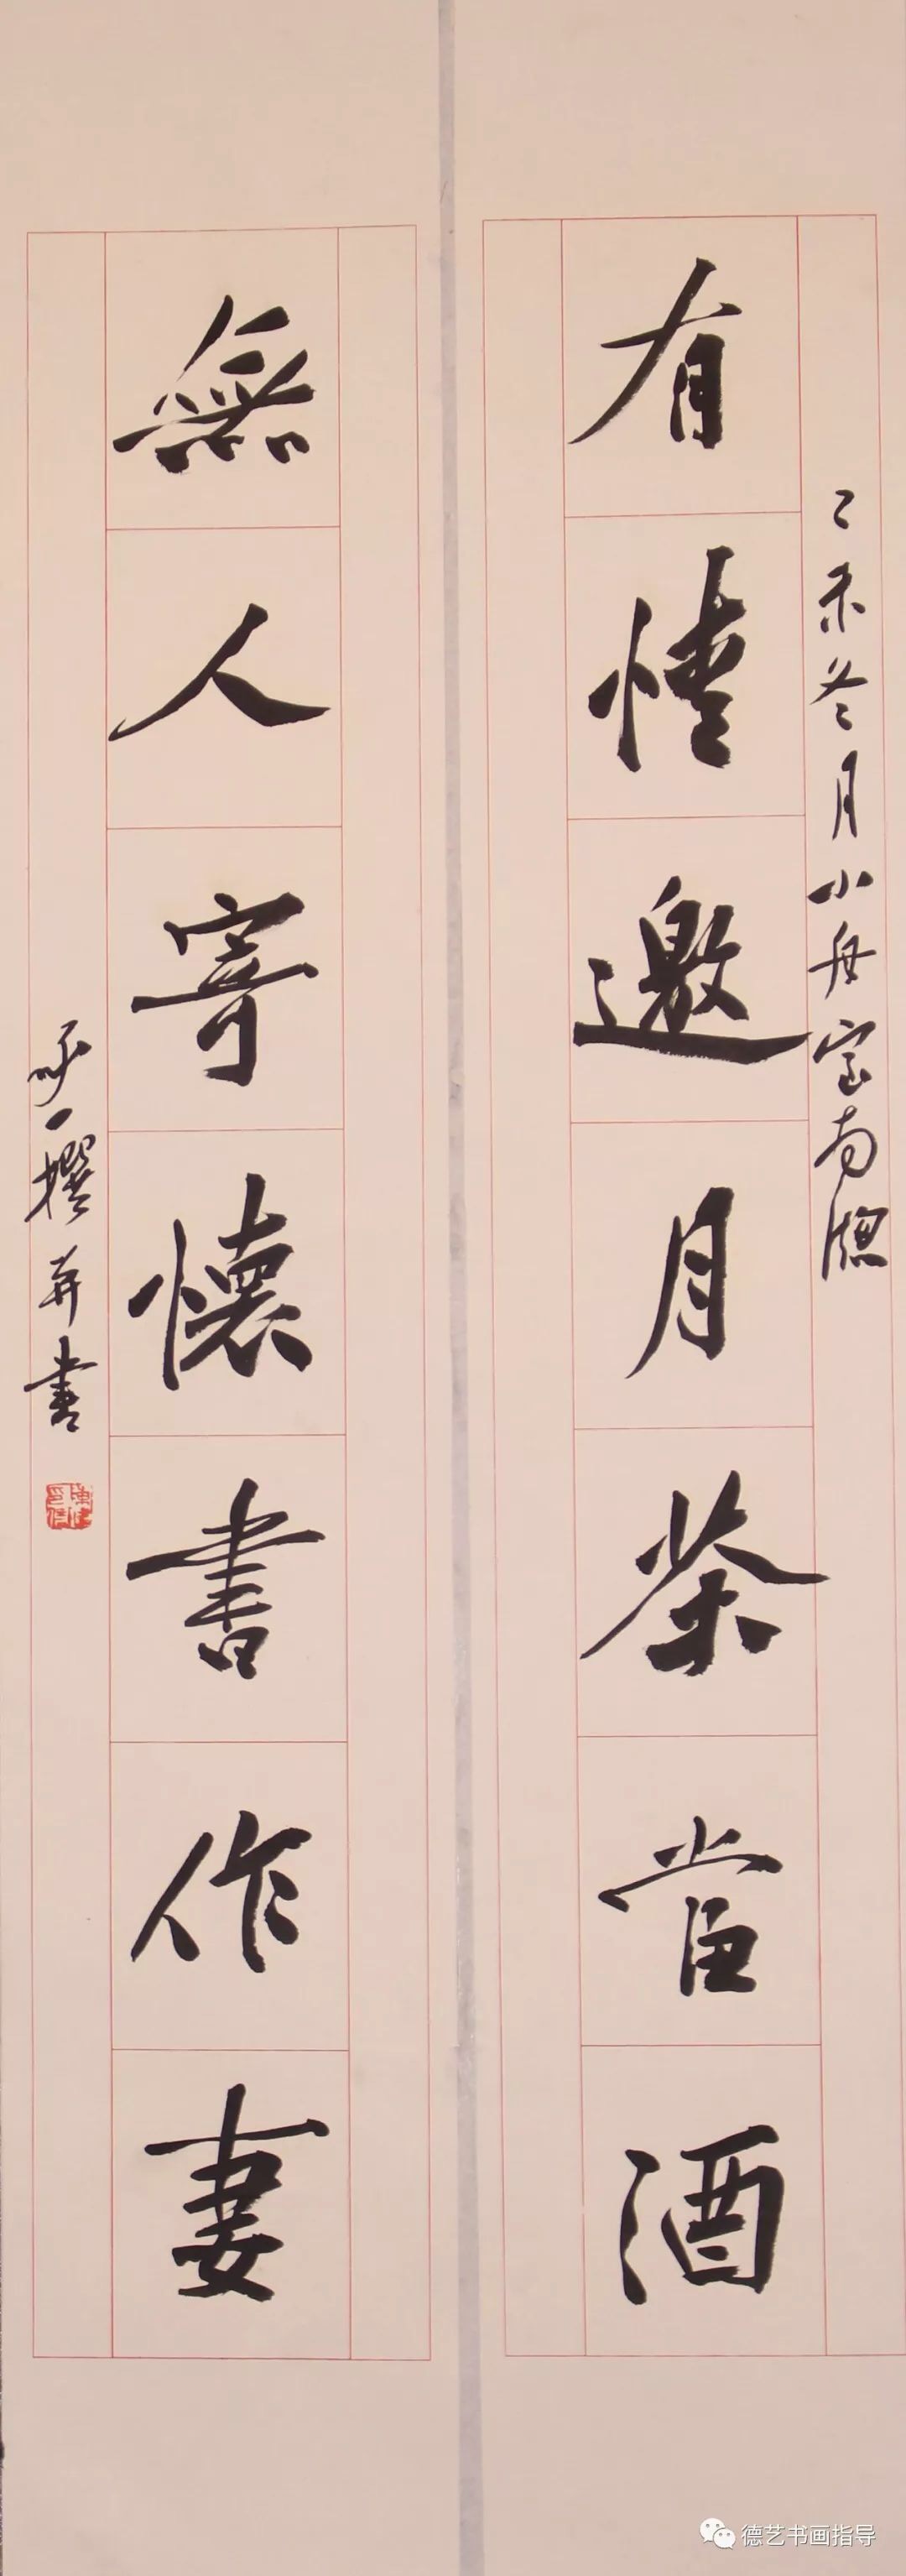 有情邀月茶當酒
乙未冬月小舟室南牕
無人寄懷書作妻
一撰并書
德艺书画指导